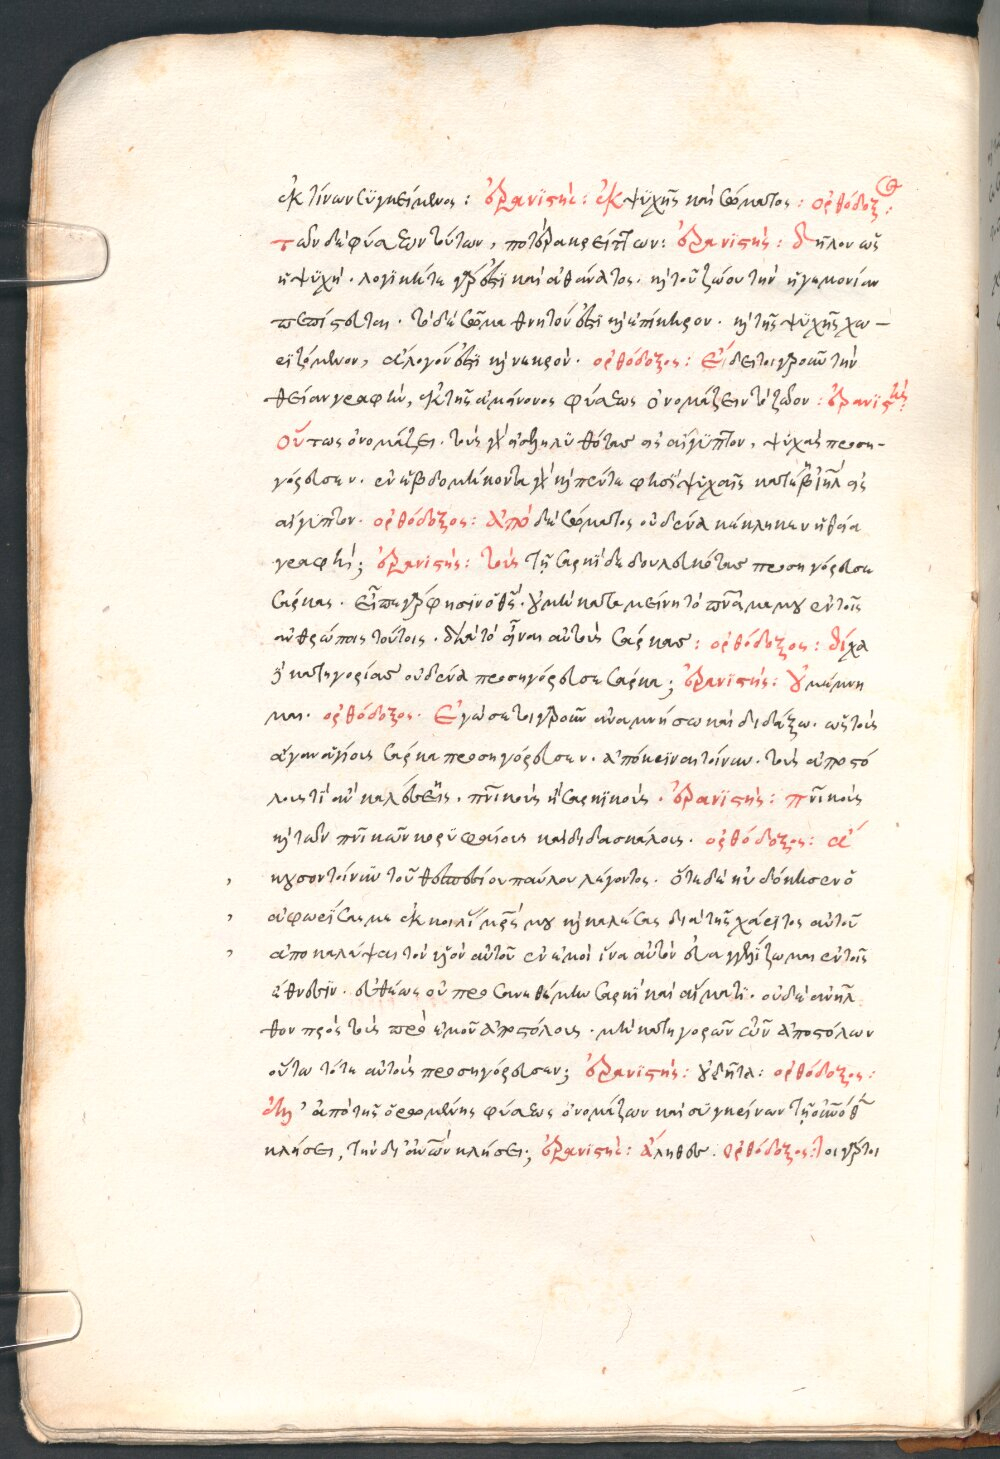 ἐκ τίνων συγκείμενος : ἐρανιστής : ἐκ ψυχῆς καὶ σώματος : ὀρθόδοξος :
τῶν δὲ φύσεων τούτων, ποτέρα κρείττων : ἐρανιστής : δῆλον ὡς
ἡ ψυχή · λογική τε γάρ ἐστι καὶ ἀθάνατος · κὴ τοῦ ζώου τὴν ἡγεμονίαν
πεπίστευται · τὸ δὲ σῶμα θνητόν ἐστι κὴ ἐπίκηρον · κὴ τῆς ψυχῆς χω–
ριζόμενον, ἄλογόν ἐστι κὴ νεκρόν · ὀρθόδοξος : Ἔδει τοιγαροῦν τὴν
θείαν γραφὴν, ἐκ τῆς ἀμείνονος φύσεως ὀνομάζειν τὸ ζῶον : ἐρανιστής :
Οὕτως ὀνομάζει · τοὺς γὰρ ἐξεληλυθότας ἐξ αἰγύπτου, ψυχὰς προση–
γόρευσεν · ἐν ἑβδομήκοντα γὰρ κὴ πέντε φησὶ ψυχαῖς κατέβη ἰηλ εἰς
αἴγυπτον · ὀρθόδοξος : Ἀπὸ δὲ σώματος οὐδένα κέκληκεν ἡ θεία
γραφή ; ἐρανιστής : τοὺς τῇ σαρκὶ δεδουλευκότας προσηγόρευσε
σάρκας · εἶπε γάρ φησιν ὁ θς · οὐ μὴ καταμείνῃ τὸ πνα μου ἐν τοῖς
ἀνθρώποις τούτοις · διὰ τὸ εἶναι αὐτοὺς σάρκας : ὀρθόδοξος : δίχα
δὲ κατηγορίας οὐδένα προσηγόρευσε σάρκα ; ἐρανιστής : οὐ μέμνη
μαι · ὀρθόδοξος · Ἐγώ σε τοιγαροῦν ἀναμνήσω καὶ διδάξω · ὡς τοὺς
ἄγαν ἁγίους σάρκα προσηγόρευσεν · ἀπόκριναι τοίνυν · τοὺς ἀποστό
λους τί ἂν καλέσεις · πνικοὺς ἢ σαρκικούς · ἐρανιστής : πνικοὺς
κὴ τῶν πνικῶν κορυφαίους καὶ διδασκάλους · ὀρθόδοξος : ἄ
κουσον τοίνυν τοῦ θεσπεσίου παύλου λέγοντος · ὅτε δὲ ηὐδόκησεν ὁ
ἀφωρίσας με ἐκ κοιλίας μρς μου κὴ καλέσας διὰ τῆς χάριτος αὐτοῦ
ἀποκαλύψαι τὸν υἱὸν αὐτοῦ ἐν ἐμοὶ ἵνα αὐτὸν εὐαγγελίζωμαι ἐν τοῖς
ἔθνεσιν · εὐθέως οὐ προσανεθέμην σαρκὶ καὶ αἵματι · οὐδὲ ἀνῆλ
θον πρὸς τοὺς πρὸ ἐμοῦ ἀποστόλους · μὴ κατηγορῶν τῶν ἀποστόλων
οὕτω τότε αὐτοὺς προσηγόρευσεν ; ἐρανιστής : οὐ δῆτα : ὀρθόδοξος :
ἀλλ' ἀπὸ τῆς ὁρωμένης φύσεως ὀνομάζων καὶ συγκρίνων τῇ οὐνόθεν
κλήσει, τὴν δι' ἀνῶν κλῆσιν ; ἐρανιστής : ἀληθές · ὀρθόδοξος : τοιγάρτοι